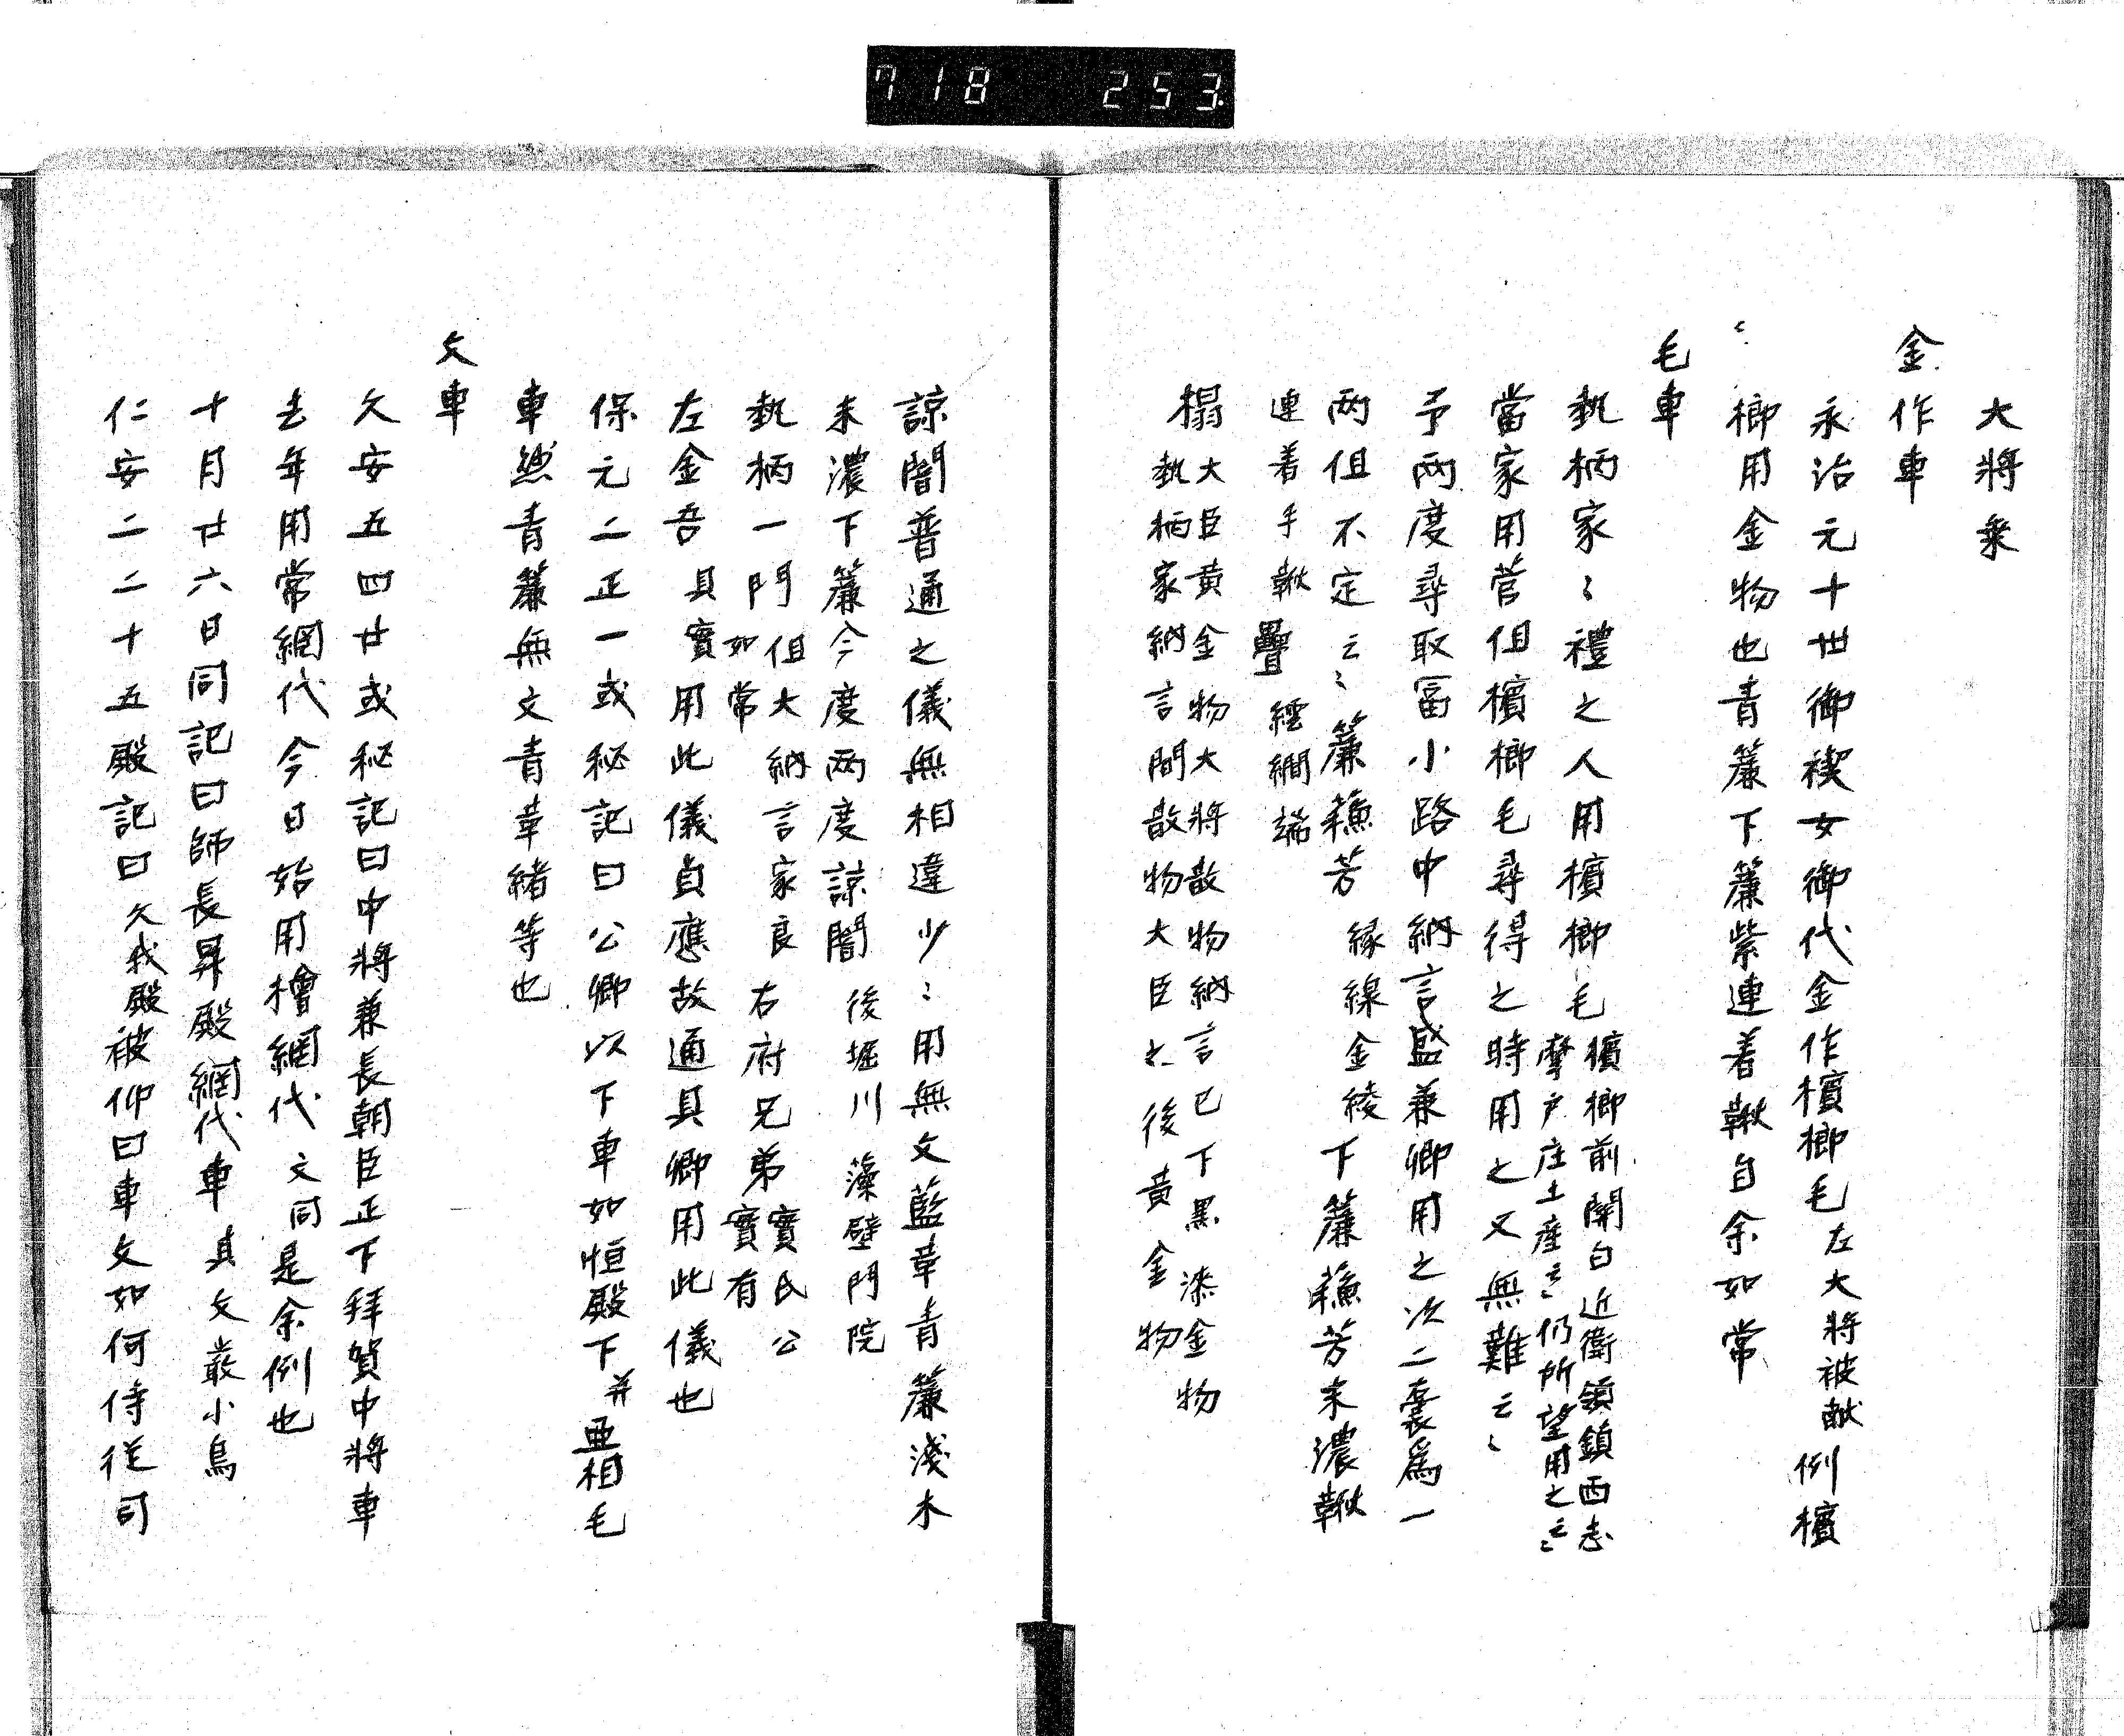 718 253
大将乗
金作車
永治元十廿御禊女御代金作檳榔毛左大将被献例檳
榔用金物也青簾下簾紫連着鞦自余如常
毛車
執柄家〻礼之人用檳榔毛檳榔前関白近衛領鎮西志
摩戸庄土産云〻仍所望用之云〻
當家用菅但檳榔毛尋得之時用之又無難云〻
予両度尋取冨小路中納言盛兼卿用之次二裹為一
両但不定云〻簾蘓芳縁線金綾下簾蘓芳末濃鞦
連着手鞦疊繧繝端
榻大臣黄金物大将散物納言已下黒漆金物
執柄家納言間散物大臣之後黄金物
諒闇普通之儀無相違少〻用無文藍革青簾淺木
末濃下簾今度両度諒闇後堀川藻璧門院
執柄一門如常但大納言家良右府兄弟實氏公實有
左金吾具實用此儀貞應故通具卿用此儀也
保元二正一或秘記曰公卿以下車如恒殿下并亜相毛
車然青簾無文青革緒等也
文車
久安五四廿或秘記曰中将兼長朝臣正下拜賀中将車
去年用常網代今日始用檜網代文同是余例也
十月廿六日同記曰師長昇殿網代車其文叢小鳥
仁安二二十五殿記曰久我殿被仰曰車文如何侍従司